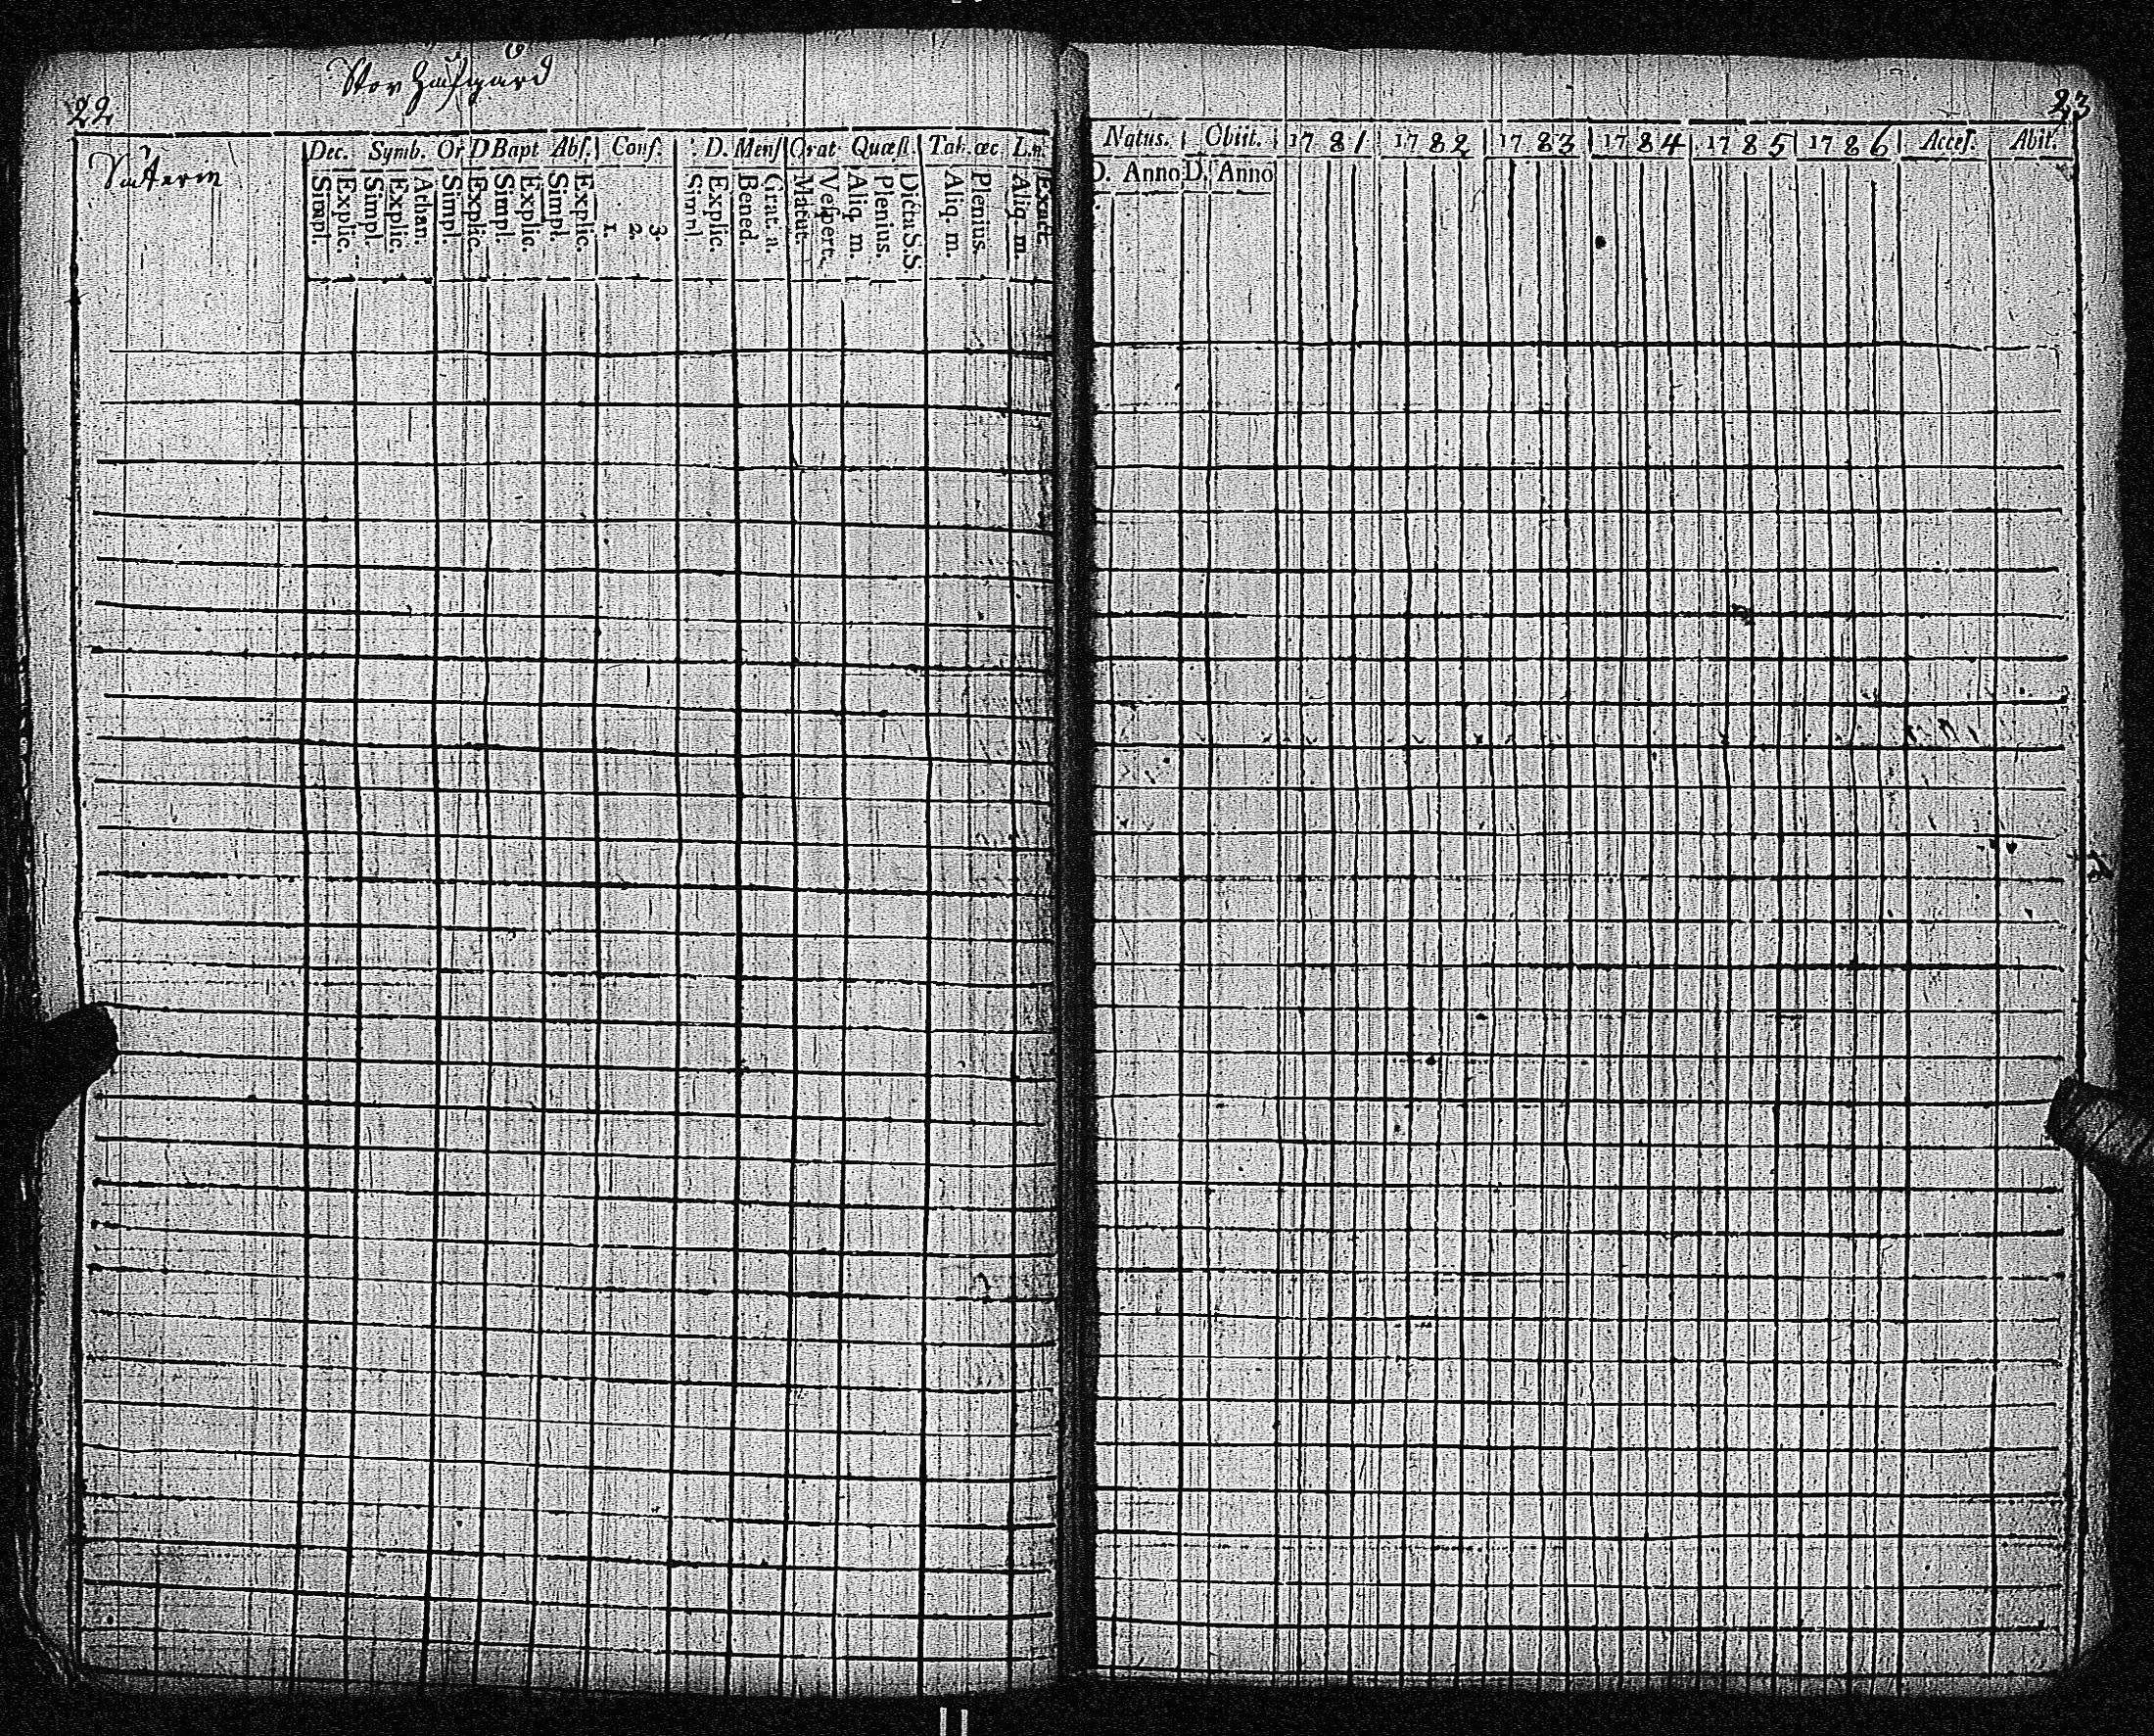 22
Dec. Symb. Or D Bapt Abs. Conf. D. Mens Orat Quæst. Tab. œc L.n.
Simpl. Explic. Simpl. Explic. Athan. Simpl. Explic. Simpl. Explic. Simpl. Explic. 1. 2. 3. Simpl. Explic. Bened. Grat. a. Matut. Vespert. Aliq. m. Plenius. Dicta S.S. Aliq. m. Plenius. Aliq. m. Exact.
23
Natus. Obiit. 1781 1782 1783 1784 1785 1786 Acces. Abit.
D. Anno D. Anno